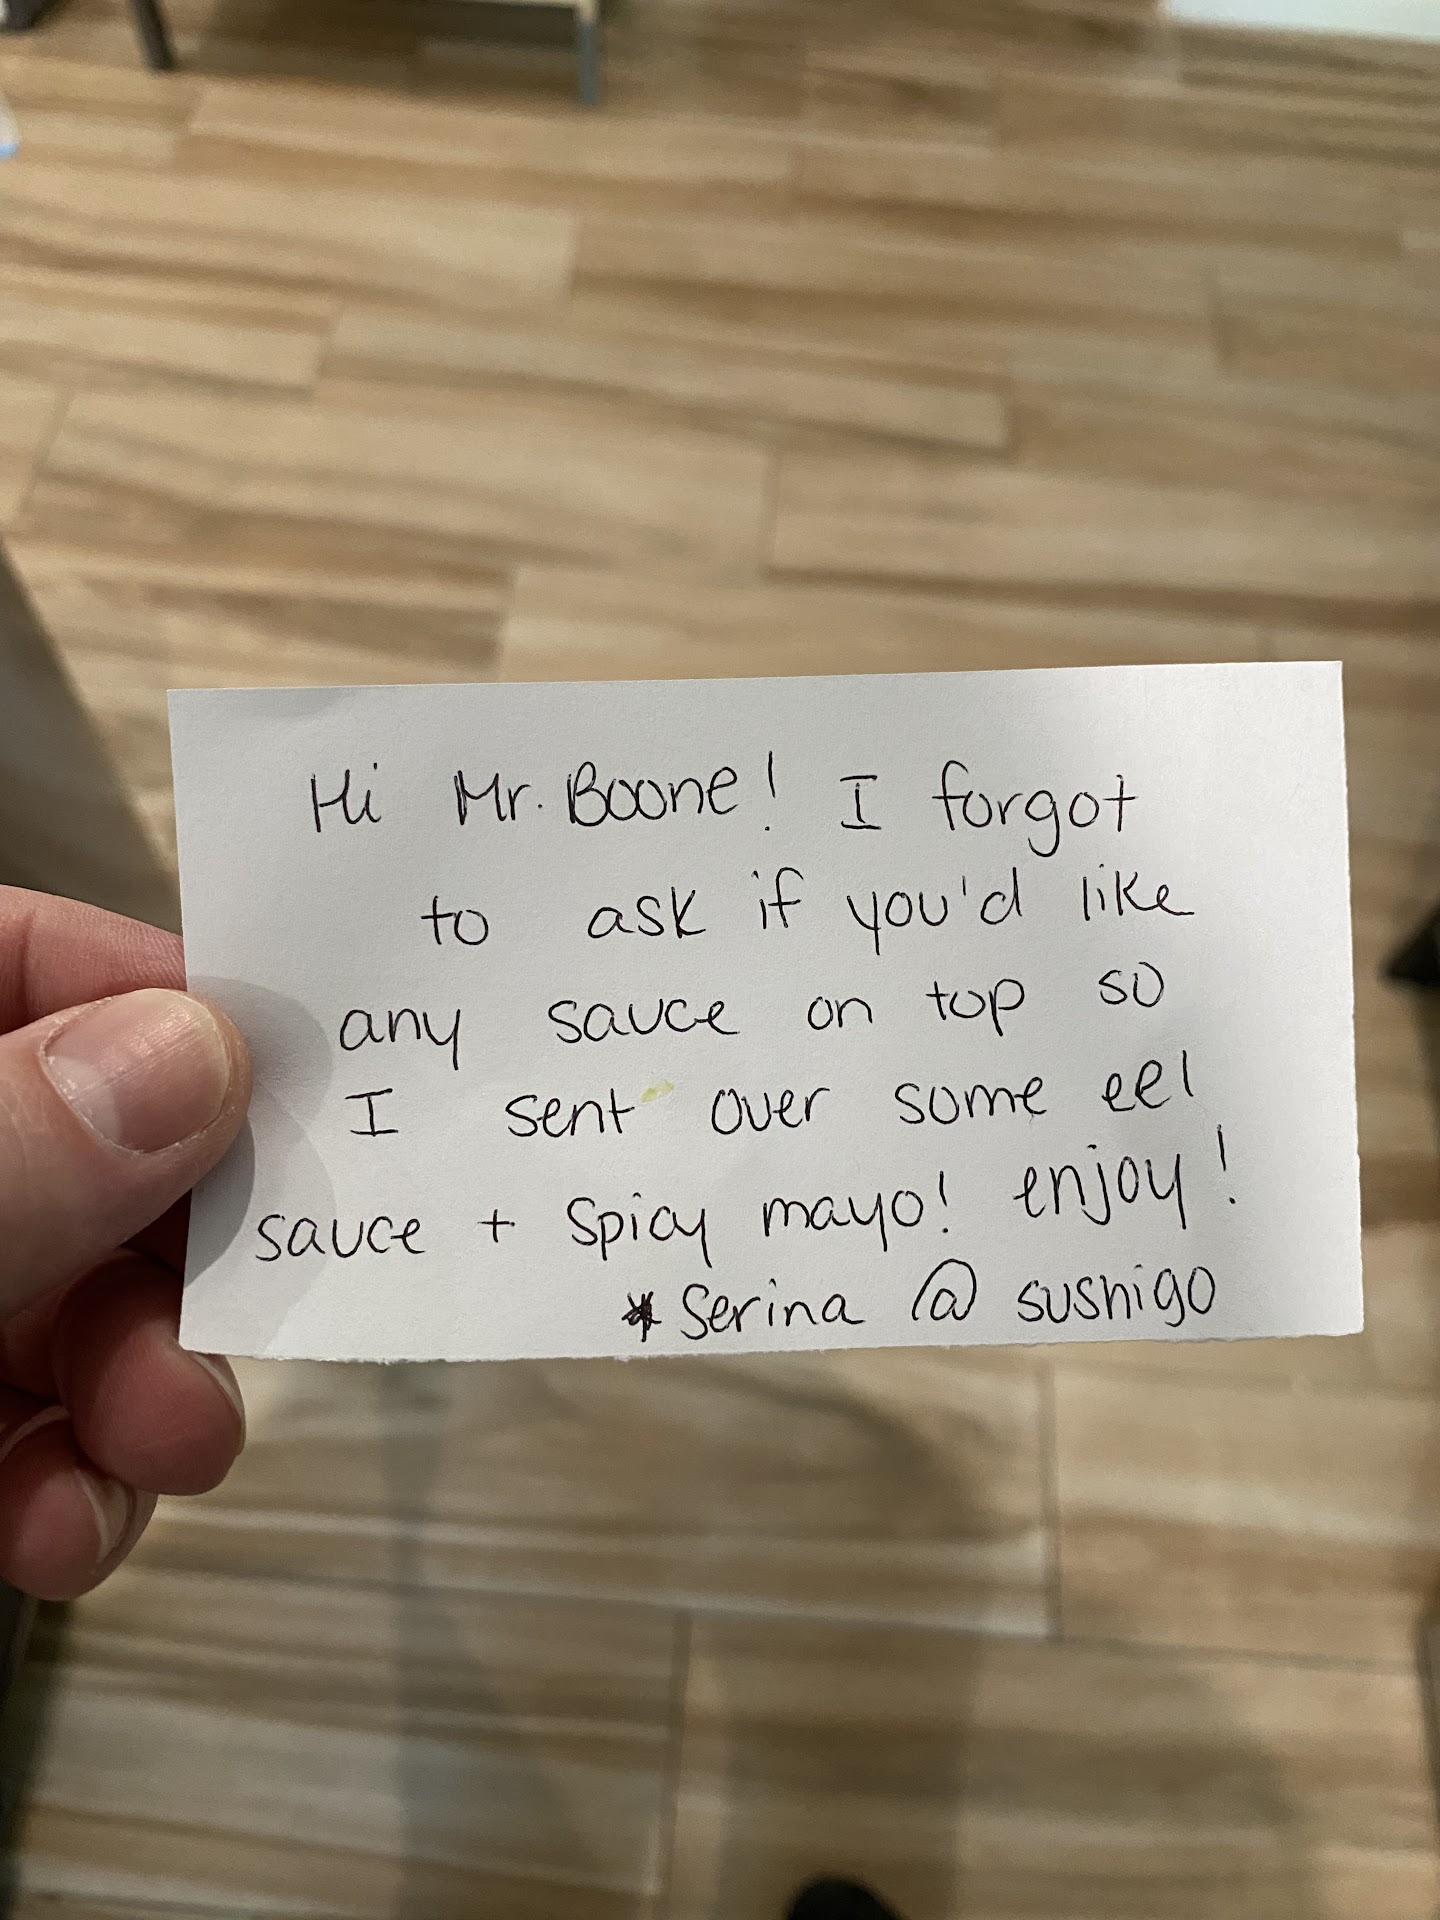 Hi Mr. Boone! I forgot
to ask if you'd like
any sauce on top so
I sent over some eel
sauce + spicy mayo! enjoy!
* Serina @ sushigo